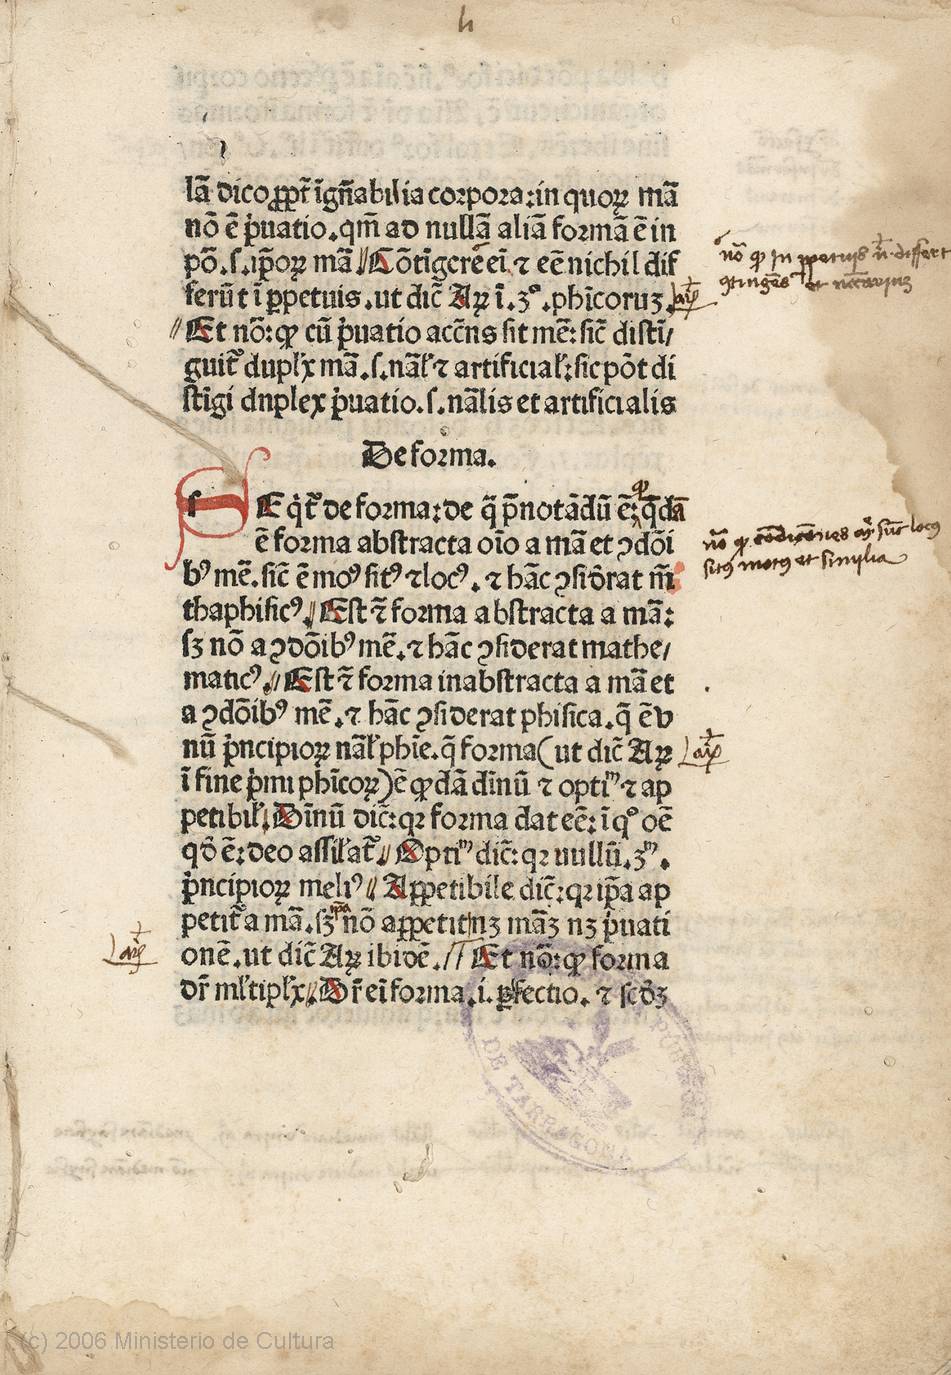 h
lā dico ꝓpt̄ īgn̄abilia corpora: in quoꝝ mā
nō ē p̄uatio. qm̄ ad nullā aliā formā ē in
pō. ſ. ip̄oꝝ mā Cōtīgere ei. ⁊ eē nichil dif
ferūt ī ꝑpetuis. ut dic̄ Aꝝ ī. 3°. phīcoruꝫ.
Et nō: ꝙ cū p̄uatio accn̄s sit mē: sic̄ distī/
guit᷑ duplꝭx mā. ſ. nāl̕ ⁊ artificial̕: sic pōt di
stīgi duplex p̄uatio. ſ. nālis et artificialis
De forma.
SE qͥt᷑ de forma: de q̄ p̄notādū ē: ꝙ q̄dā
ē forma abstracta oīo a mā et ꝯdōi
bꝰ mē. sic̄ ē moꝰ sitꝰ ⁊ locꝰ. ⁊ hāc ꝯsiđrat m̄
thaphisicꝰ Est ⁊̄ forma abstracta a mā:
sꝫ nō a ꝯdōibꝰ mē. ⁊ hāc ꝯsiderat mathe/
maticꝰ. Est ⁊̄ forma inabstracta a mā et
a ꝯdōibꝰ mē. ⁊ hāc ꝯsiderat phisica. q̄ ē v
nū p̄ncipioꝝ nāl̕ phīe. q̄ forma (ut dic̄ Aꝝ
ī fine p̄mi phīcoꝝ) ē ꝙdā dīnū ⁊ optiᵐ ⁊ ap
petibil̕. Dīnū dic̄: qꝛ forma dat eē: ī q° oē
qđ ē: deo assil̕at᷑. Optiᵐ dic̄: qꝛ nullū. 3ᵐ.
p̄ncipioꝝ meliꝰ Appetibile dic̄: qꝛ ip̄a ap
petit᷑ a mā. sꝫ ip̄a nō appetit nꝫ māꝫ nꝫ p̄uati
onē. ut dic̄ Aꝝ ibidē. Et nō: ꝙ forma
dr̄ ml̕tiplꝭx. Dr̄ ei forma. i. ꝑfectio. ⁊ scđꝫ
nō ꝙ in ꝑpetuis n̄ differt
ꝯtingēs et necc̄arius
nō ꝙ cōdicōnes mē sūt locꝰ
sitꝰ motꝰ et similia
DE TARRAGONA
(c) 2006 Ministerio de Cultura